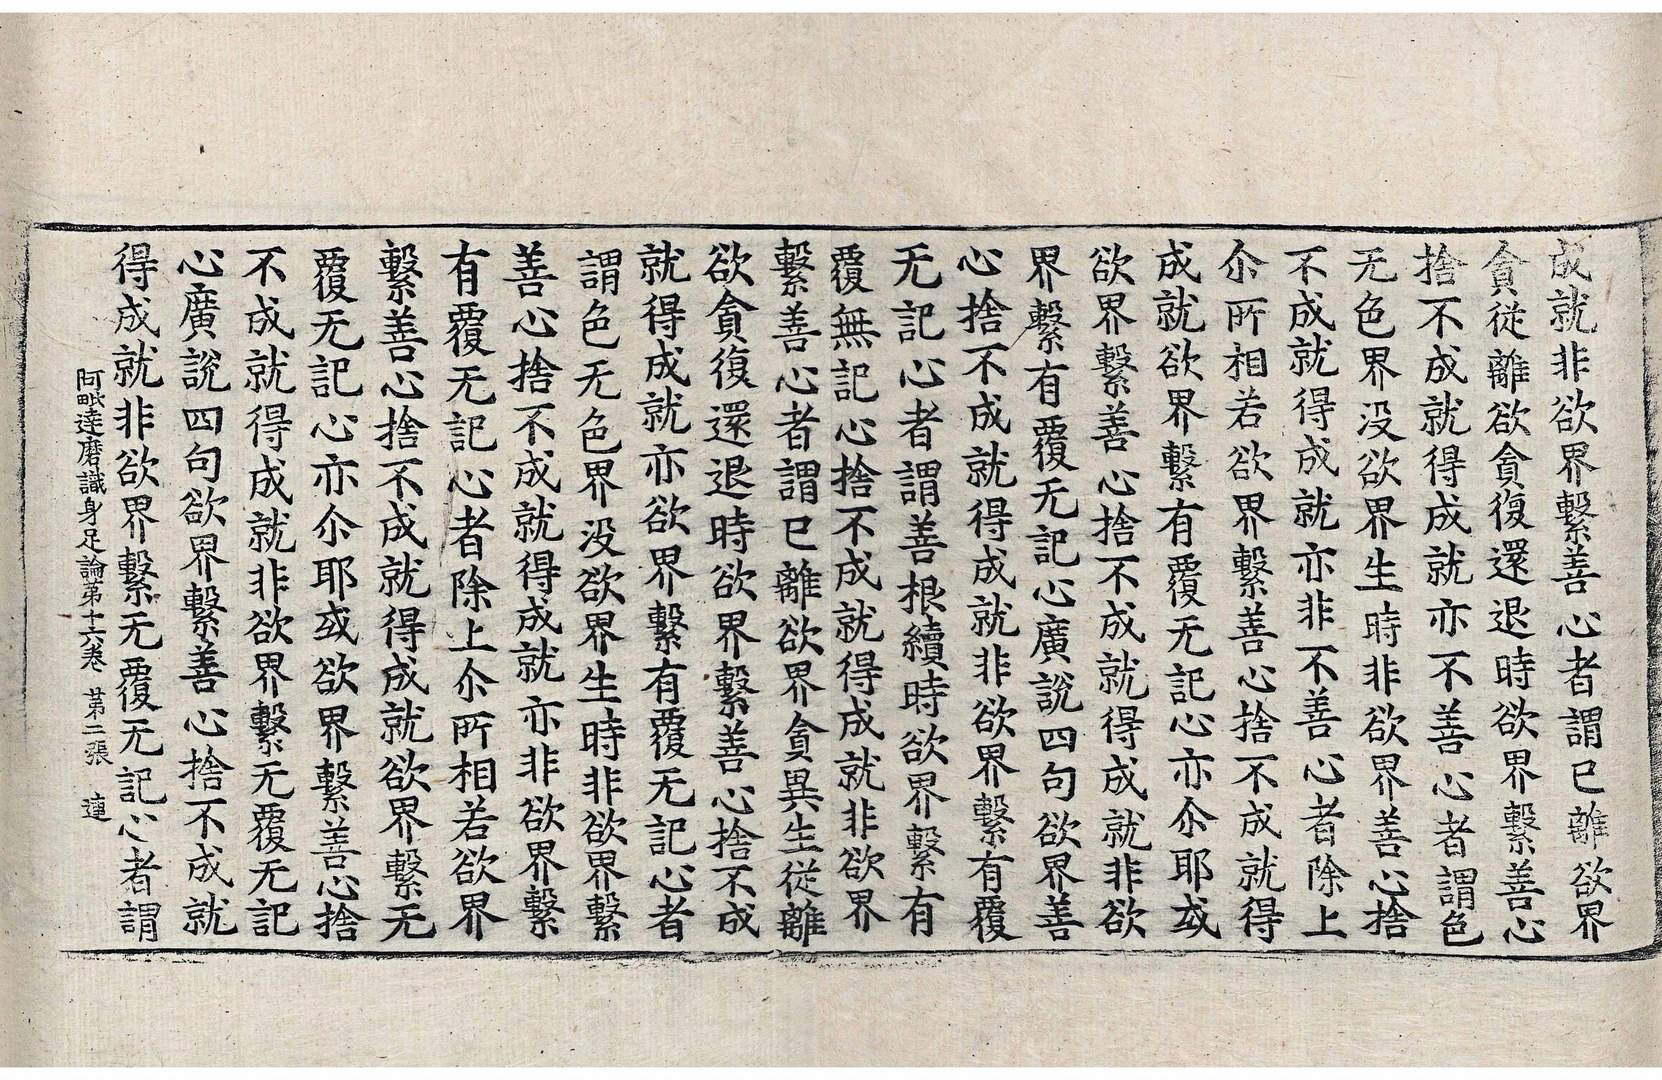 成就非欲界繫善心者謂已離欲界
貪從離欲貪復還退時欲界繫善心
捨不成就得成就亦不善心者謂色
无色界没欲界生時非欲界善心捨
不成就得成就亦非不善心者除上
尒所相若欲界繫善心捨不成就得
成就欲界繫有覆无記心亦尒耶或
欲界繫善心捨不成就得成就非欲
界繫有覆无記心廣說四句欲界善
心捨不成就得成就非欲界繫有覆
无記心者謂善根續時欲界繫有
覆無記心捨不成就得成就非欲界
繫善心者謂已離欲界貪異生從離
欲貪復還退時欲界繫善心捨不成
就得成就亦欲界繫有覆无記心者
謂色无色界没欲界生時非欲界繫
善心捨不成就得成就亦非欲界繫
有覆无記心者除上尒所相若欲界
繫善心捨不成就得成就欲界繫无
覆无記心亦尒耶或欲界繫善心捨
不成就得成就非欲界繫无覆无記
心廣說四句欲界繫善心捨不成就
得成就非欲界繫无覆无記心者謂
阿毗達磨識身足論苐十六卷 苐二張 連